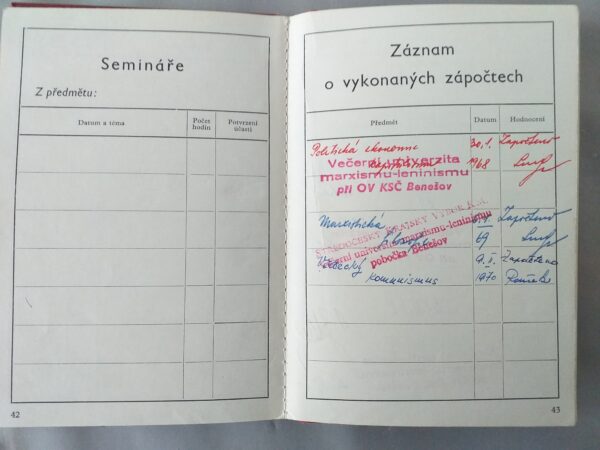 Semináře
Z předmětu:
Datum a téma
Počet hodin
Potvrzení účasti
42
Záznam
o vykonaných zápočtech
Předmět
Datum
Hodnocení
Politická ekonomie 30.1. Započteno
kapitalismu 1968
Večerní univerzita
marxismu-leninismu
při OV KSČ Benešov
Marxistická Započteno
filosofie 69
STŘEDOČESKÝ KRAJSKÝ VÝBOR K.S.
Večerní universita marxismu-leninismu
pobočka Benešov
Vědecký 9. II. Započteno
komunismus 1970
43